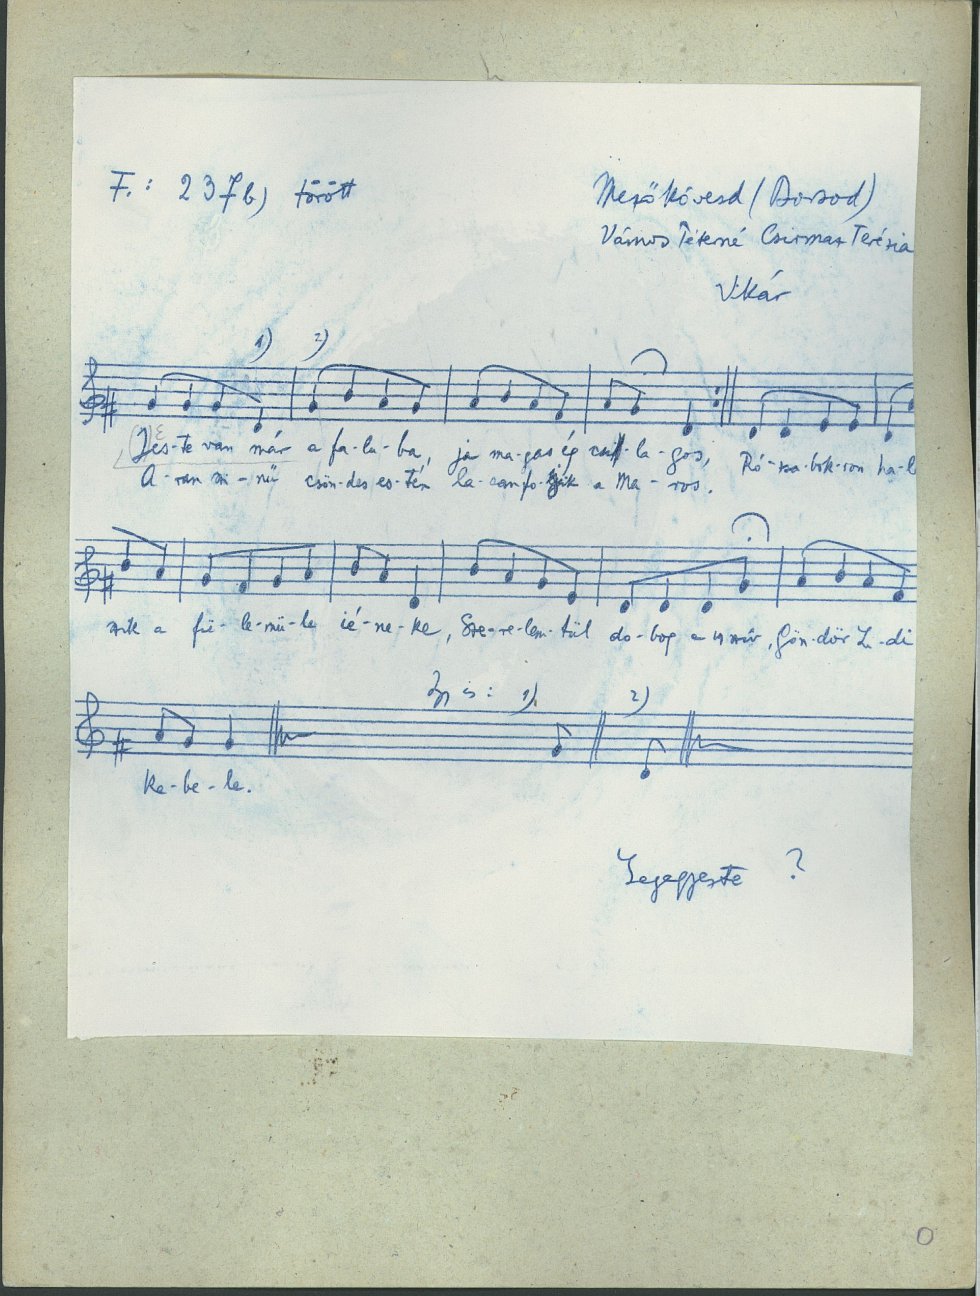 F.: 237b) törött
Mezőkövesd (Borsod)
Vámos Péterné Csirmaz Terézia
Vikár
1) 2)
Les-te van már a fa-lu-ba, já ma-gas ég csil-la-gos, Ró-zsa-bok-ron hal-l
A-ran szi-nü csön-des es-tén la-can a Ma-ros.
szik a fü-le-mü-le ié-ne-ke, Sze-re-lem-tül do-bog a sziv, Gön-dör Li-di
ke-be-le.
Igy is: 1) 2)
?
O